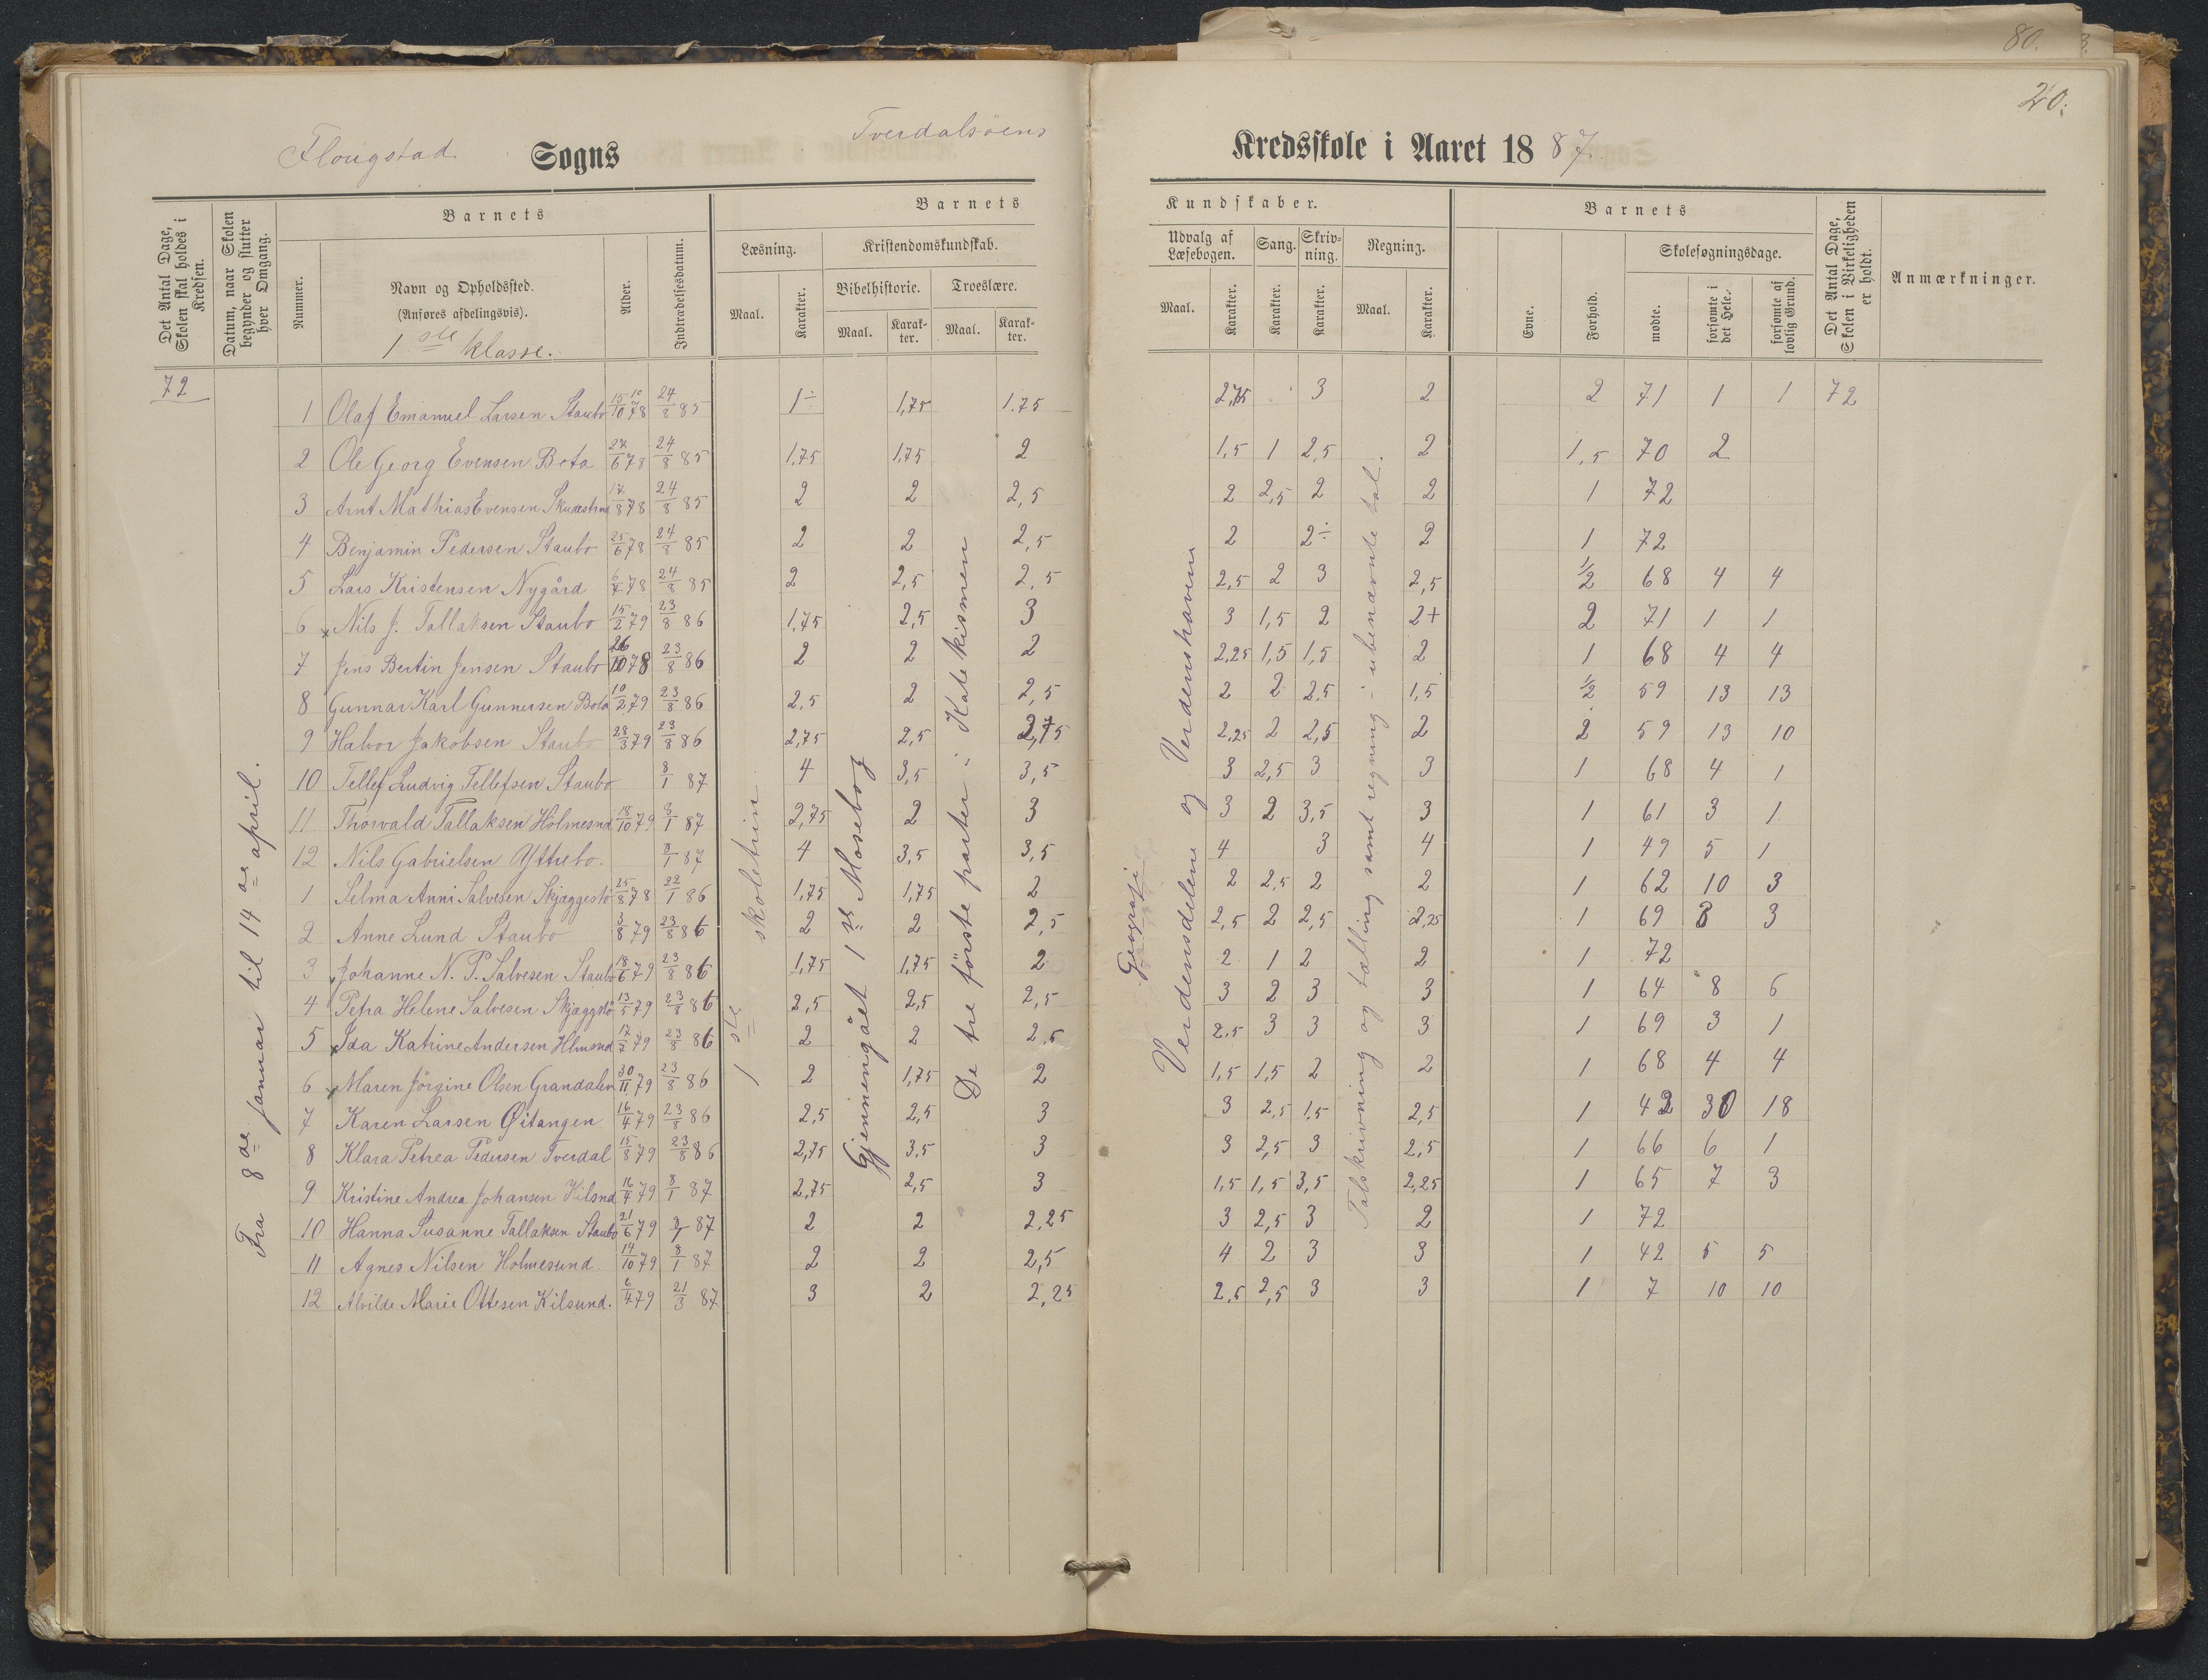 80.
20.
Flougstad Sogns Tverdalsöens Kredsskole i Aaret 1887.
Det Antal Dage, Skolen skal holdes i Kredsen.
Datum, naar Skolen begynder og slutter hver Omgang.
Barnets
Nummer.
Navn og Opholdssted.
(Anføres afdelingsvis).
1ste klasse.
Alder.
Indtrædelsesdatum.
Barnets Kundskaber.
Læsning.
Maal.
Karakter.
Kristendomskundskab.
Bibelhistorie.
Maal.
Karakter.
Troeslære.
Maal.
Karakter.
Udvalg af Læsebogen.
Maal.
Karakter.
Sang.
Karakter.
Skrivning.
Karakter.
Regning.
Maal.
Karakter.
Barnets
Evne.
Forhold.
Skolesøgningsdage.
mødte.
forsømte i det Hele.
forsømte af lovlig Grund.
Det Antal Dage, Skolen i Virkeligheden er holdt.
Anmærkninger.
72
Fra 8de januar til 14de april.
1ste skoletrin
Gjennemgået 1ste Mosebog
De tre förste parter i Katekismen
Geografi
Verdensdelene og Verdenshavene
Talskrivning og tælling samt regning i ubenævnte tal.
1 Olaf Emanuel Larsen Staubo 15/10 78 24/8 85 1÷ 1,75 1.75 2,75 3 2 2 71 1 1 72
2 Ole Georg Evensen Bota 27/6 78 24/8 85 1,75 1,75 2 1,5 1 2,5 2 1,5 70 2
3 Arnt Mathias Evensen 17/8 78 24/8 85 2 2 2,5 2 2,5 2 2 1 72
4 Benjamin Pedersen Staubo 25/6 78 24/8 85 2 2 2,5 2 2÷ 2 1 72
5 Lars Kristensen Nygård 6/7 78 24/8 85 2 2,5 2,5 2,5 2 3 2,5 1/2 68 4 4
6 Nils J. Tallaksen Staubo 15/2 79 23/8 86 1,75 2,5 3 3 1,5 2 2+ 2 71 1 1
7 Jens Bertin Jensen Staubo 26/10 78 23/8 86 2 2 2 2,25 1,5 1,5 2 1 68 4 4
8 Gunnar Karl Gunnersen Bota 10/2 79 23/8 86 2,5 2 2,5 2 2 2,5 1,5 1/2 59 13 13
9 Halvor Jakobsen Staubo 28/3 79 23/8 86 2,75 2,5 2,75 2,25 2 2,5 2 2 59 13 10
10 Tellef Ludvig Tellefsen Staubo 8/1 87 4 3,5 3,5 3 2,5 3 3 1 68 4 1
11 Thorvald Tallaksen Holmesnd 18/10 79 8/1 87 2,75 2 3 3 2 3,5 3 1 61 3 1
12 Nils Gabrielsen Yttrebo. 8/1 87 4 3,5 3,5 4 3 4 1 49 5 1
1 Selma Anni Salvesen Skjæggestö 25/8 78 22/1 86 1,75 1,75 2 2 2,5 2 2 1 62 10 3
2 Anne Lund Staubo 3/8 79 23/8 86 2 2 2,5 2,5 2 2,5 2,25 1 69 3 3
3 Johanne N. P. Salvesen Staubo 18/6 79 23/8 86 1,75 1,75 2 2 1 2 2 1 72
4 Petra Helene Salvesen Skjæggstö 13/5 79 23/8 86 2,5 2,5 2,5 3 2 3 3 1 64 8 6
5 Ida Katrine Andersen Hlmsnd 17/7 79 23/8 86 2 2 2,5 2,5 3 3 3 1 69 3 1
6 Maren Jörgine Olsen Grandalen 30/11 79 23/8 86 2 1,75 2 1,5 1,5 2 2 1 68 4 4
7 Karen Larsen Øitangen 16/4 79 23/8 86 2,5 2,5 3 3 2,5 1,5 2,5 1 42 30 18
8 Klara Petrea Pedersen Tverdal 15/8 79 23/8 86 2,75 3,5 3 3 2,5 3 2,5 1 66 6 1
9 Kristine Andrea Johansen Kilsnd 16/4 79 8/1 87 2,75 2,5 3 1,5 1,5 3,5 2,25 1 65 7 3
10 Hanna Susanne Tallaksen Staubo 21/6 79 8/1 87 2 2 2,25 3 2,5 3 2 1 72
11 Agnes Nilsen Holmesund 14/10 79 8/1 87 2 2 2,5 4 2 3 3 1 42 5 5
12 Alvilde Marie Ottesen Kilsund. 6/4 79 21/3 87 3 2 2,25 2,5 2,5 3 3 1 7 10 10